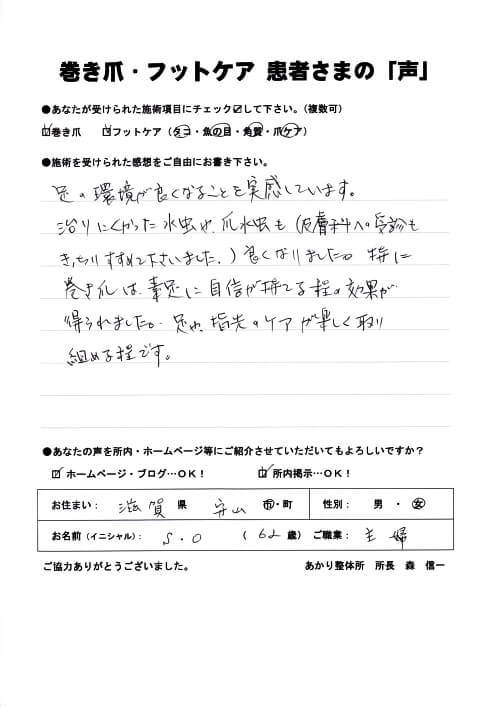 巻き爪・フットケア 患者さまの「声」
●あなたが受けられた施術項目にチェック☑して下さい。（複数可）
☑巻き爪　☑フットケア（タコ・魚の目・角質・爪ケア）
●施術を受けられた感想をご自由にお書き下さい。
足の環境が良くなることを実感しています。
治りにくかった水虫や、爪水虫も（皮膚科への受診も
きっちりすすめて下さいました。）良くなりました。特に
巻き爪は、素足に自信が持てる程の効果が
得られました。足や、指先のケアが楽しく取り
組める程です。
●あなたの声を所内・ホームページ等にご紹介させていただいてもよろしいですか？
☑ホームページ・ブログ…ＯＫ！　☑所内掲示…ＯＫ！
お住まい：滋賀県 守山 市・町　性別：男・女
お名前（イニシャル）：S・O（62歳）ご職業：主婦
ご協力ありがとうございました。　あかり整体所　所長　森　信一